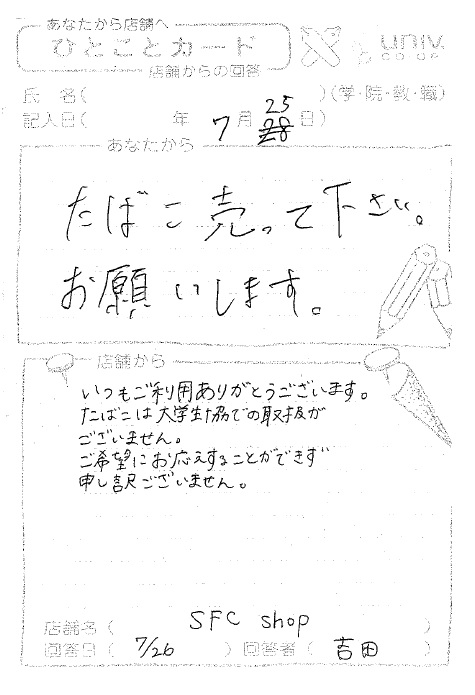 あなたから店舗へ
ひとことカード
店舗からの回答
univ.
co op
氏 名( )(学・院・教・職)
25
記入日( 年 7月 28 日)
あなたから
たばこ売って下さい。
お願いします。
店舗から
いつもご利用ありがとうございます。
たばこは大学生協での取扱が
ございません。
ご希望にお応えすることができず
申し訳ございません。
店舗名( SFC shop )
回答日( 7/26 ) 回答者( 吉田 )